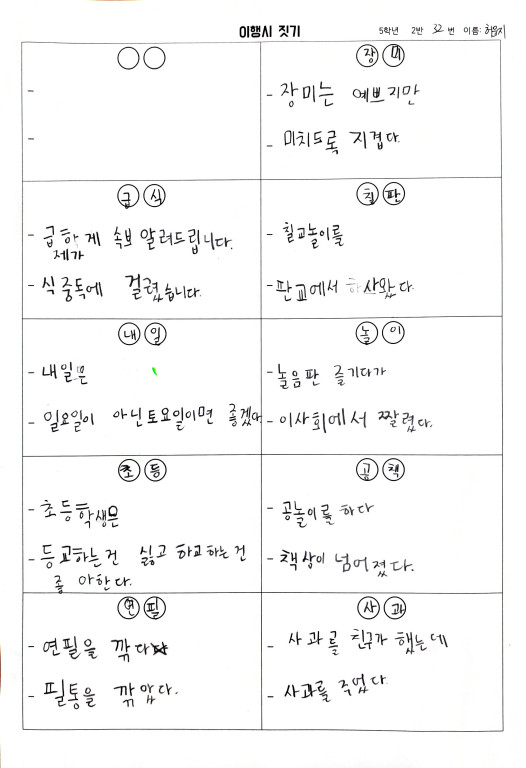 이행시 짓기
5학년 2반 32번 이름:
○○
-
-
장미
- 장미는 예쁘지만
- 미치도록 지겹다.
급식
- 급하게 속보 알려드립니다.
제가
- 식중독에 걸렸습니다.
칠판
- 칠교놀이를
- 판교에서 사왔다.
내일
- 내일은
- 일요일이 아닌토요일이면 좋겠다
놀이
- 놀음판 즐기다가
- 이사회에서 짤렸다.
초등
- 초등학생은
- 등교하는건 싫고 하교하는건
좋아한다.
공책
- 공놀이를 하다
- 책상이 넘어졌다.
연필
- 연필을 깎다
- 필통을 깎았다.
사과
- 사과를 친구가 했는데
- 사과를 주었다